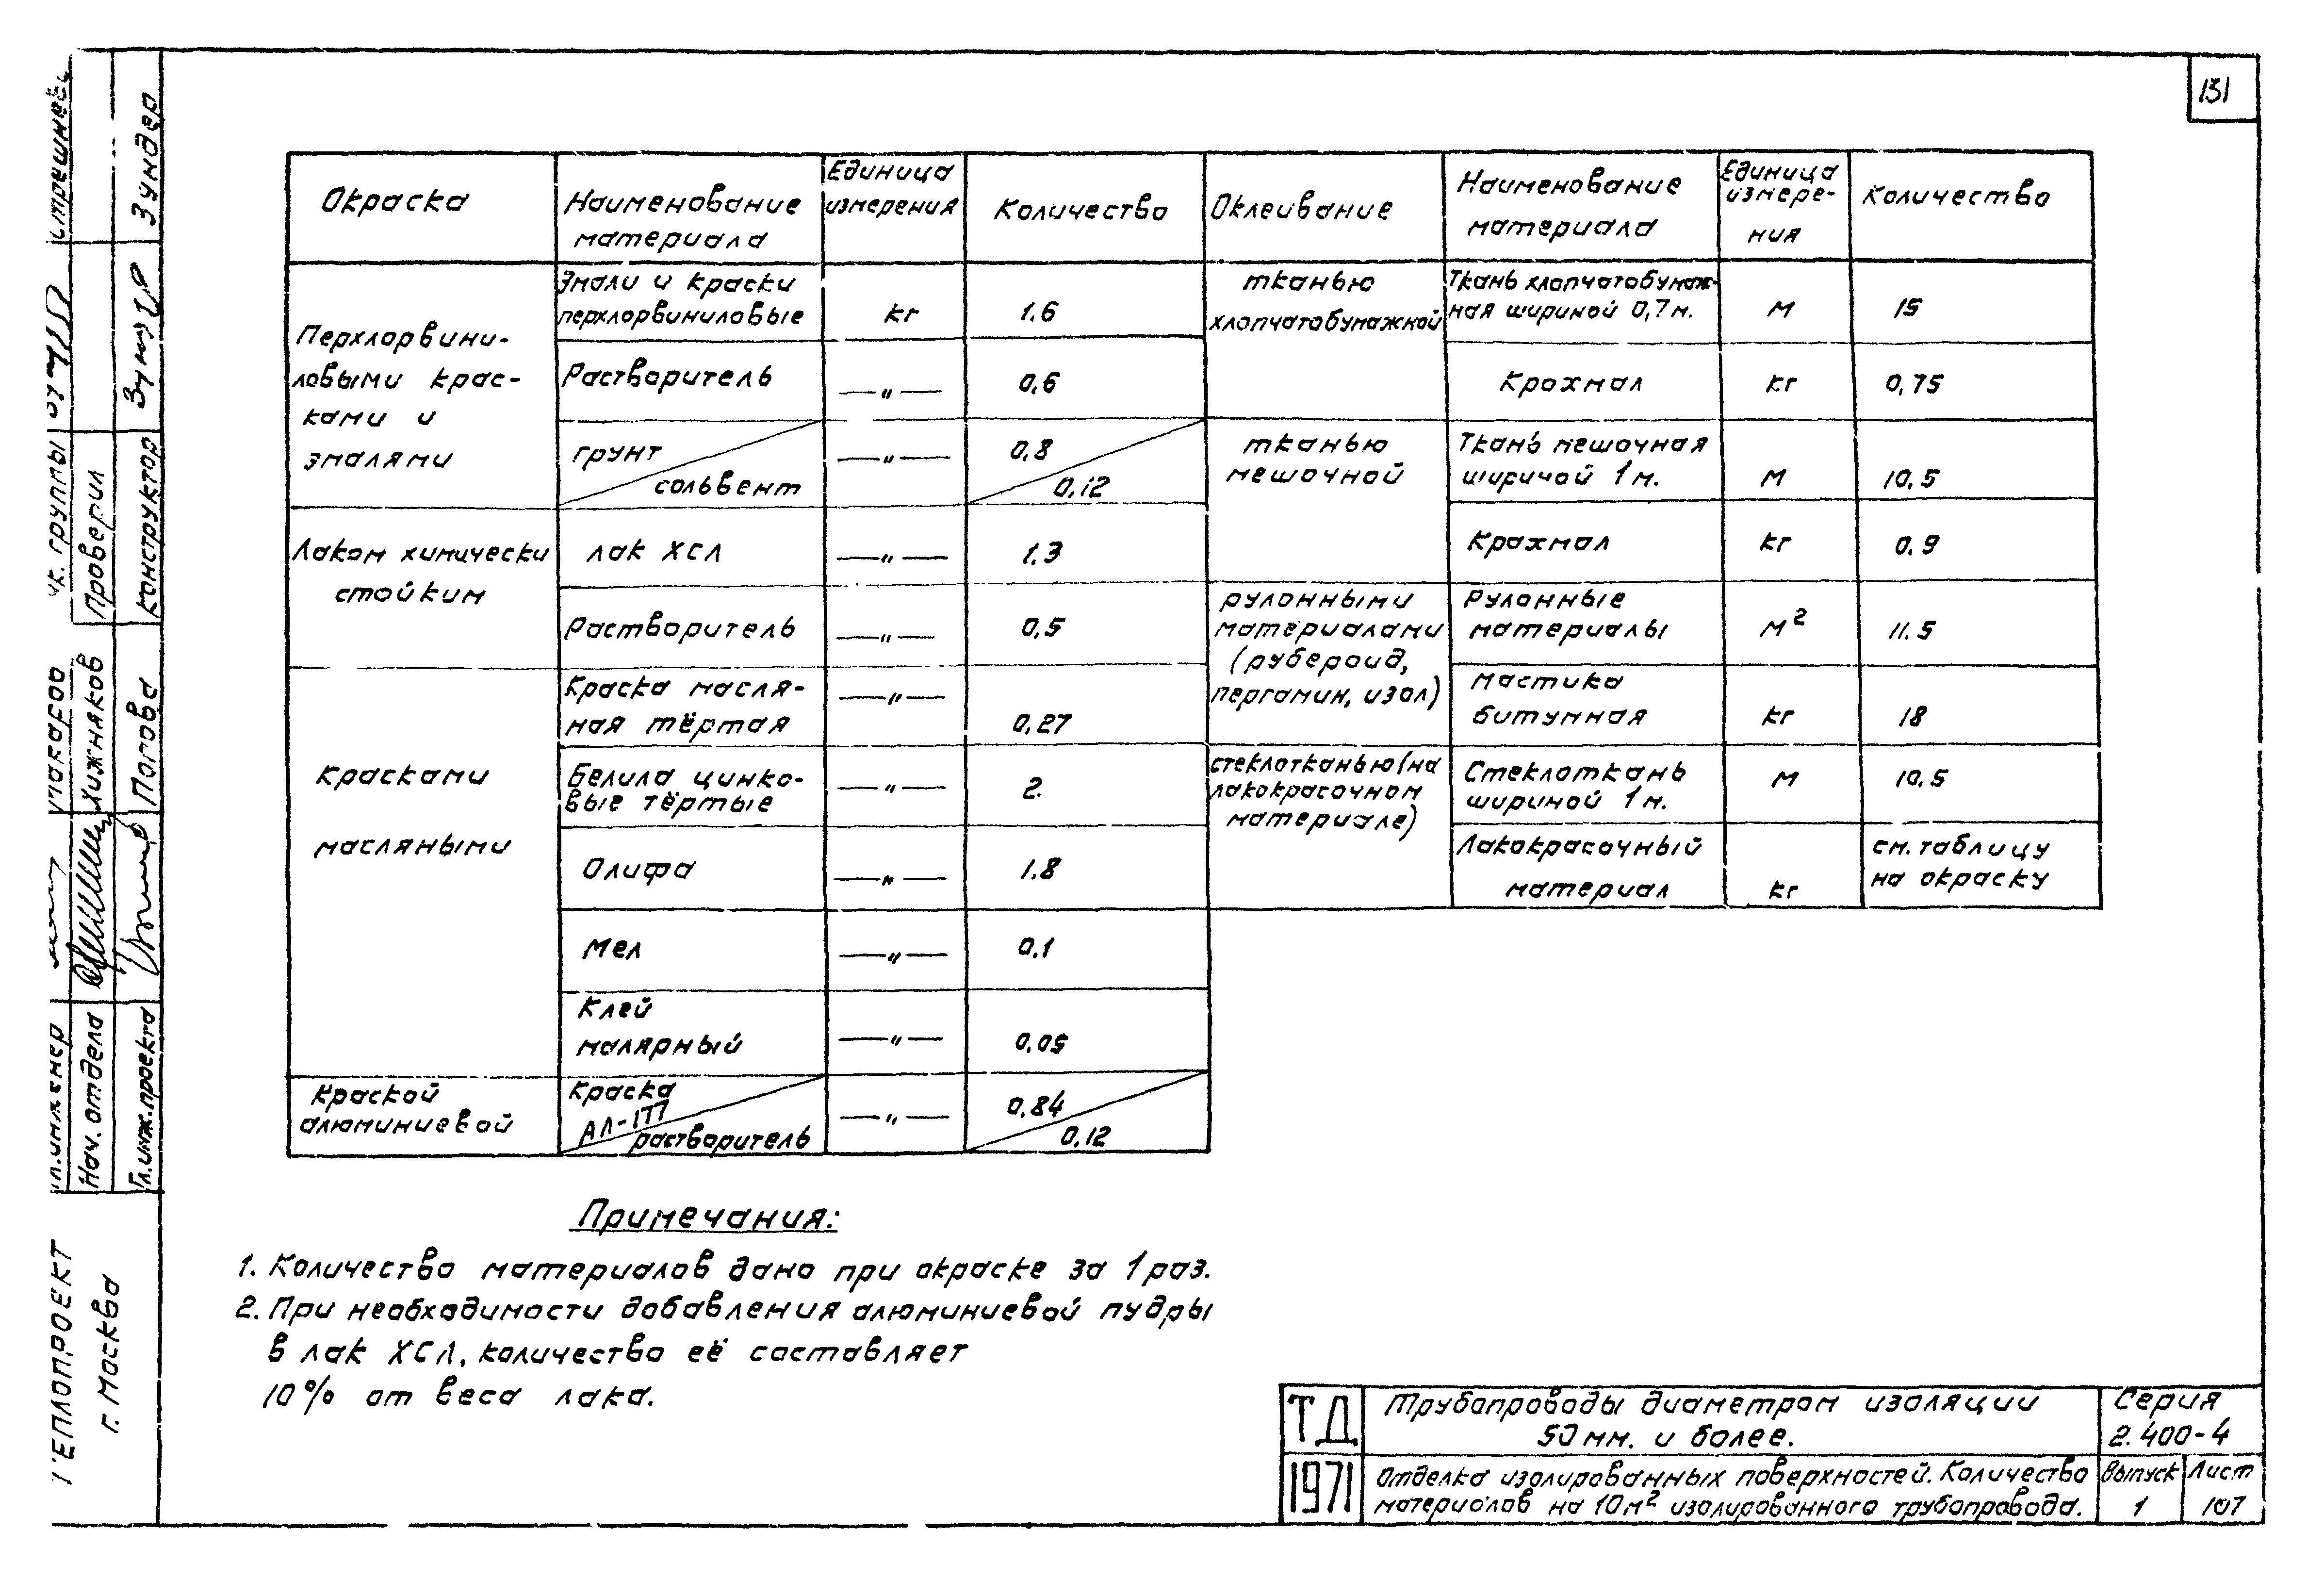 131
Окраска
Наименование
материала
Единица
измерения
Количество
Оклеивание
Наименование
материала
Единица
измере-
ния
Количество
Перхлорвини-
ловыми крас-
ками и
эмалями
Эмали и краски
перхлорвиниловые
кг
1.6
Растворитель
—"—
0,6
грунт
сольвент
—"—
0,8
0,12
Лаком химически
стойким
лак ХСЛ
—"—
1.3
Растворитель
—"—
0,5
Красками
масляными
Краска масля-
ная тёртая
—"—
0,27
Белила цинко-
вые тёртые
—"—
2.
Олифа
—"—
1.8
Мел
—"—
0.1
Клей
малярный
—"—
0,05
Краской
алюминиевой
Краска
АЛ-177
растворитель
—"—
0,84
0,12
тканью
хлопчатобумажной
Ткань хлопчатобумаж-
ная шириной 0,7м.
м
15
Крохмал
кг
0,75
тканью
мешочной
Ткань мешочная
шириной 1м.
м
10,5
Крахмал
кг
0.9
рулонными
материалами
(рубероид,
пергамин, изол)
Рулонные
материалы
м²
11.5
мастика
битумная
кг
18
стеклотканью (на
лакокрасочном
материале)
Стеклоткань
шириной 1м.
м
10.5
Лакокрасочный
материал
кг
см. таблицу
на окраску
Примечания:
1. Количество материалов дано при окраске за 1 раз.
2. При необходимости добавления алюминиевой пудры
в лак ХСЛ, количество её составляет
10% от веса лака.
ТД
1971
Трубопроводы диаметром изоляции
50мм. и более.
Серия
2.400-4
Отделка изолированных поверхностей. Количество
материалов на 10м² изолированного трубопровода.
Выпуск
1
Лист
107
Зундер
Проверил
Конструктор
Хижняков
Попова
Нач. отдела
Гл.инж.проекта
ТЕПЛОПРОЕКТ
г. Москва